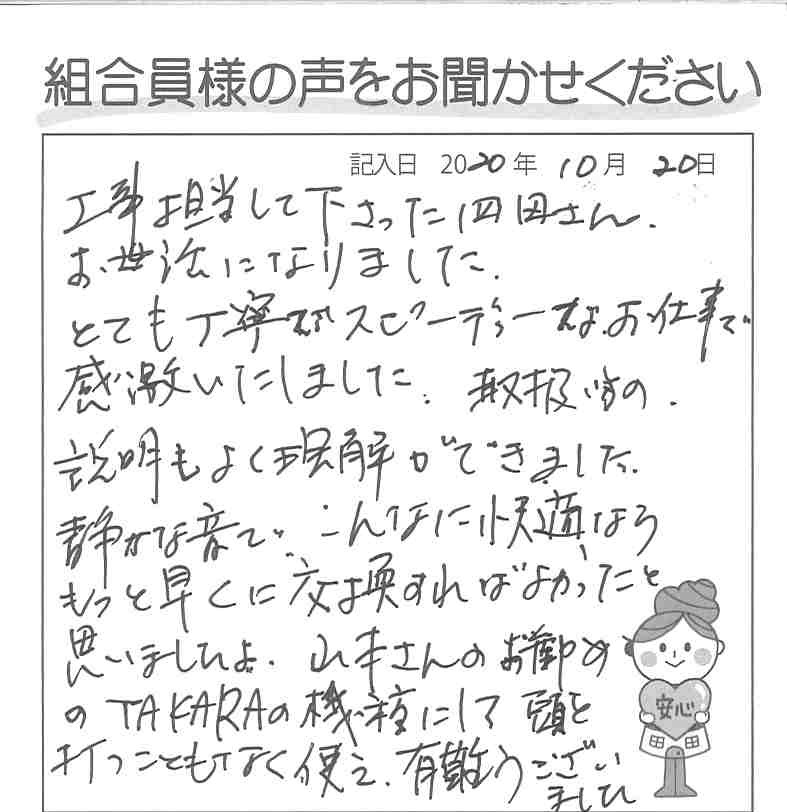 組合員様の声をお聞かせください
記入日 2020年 10月 20日
工事担当して下さった四田さん.
お世話になりました.
とても丁寧でスピーディーなお仕事で
感激いたしました. 取扱い等の.
説明もよく理解ができました.
静かな音で、こんなに快適なら
もっと早くに交換すればよかったと
思いましたよ. 山本さんのお勧め
のTAKARAの機種にして 頭を
打つこともなく使え. 有難うござい
ました
安心